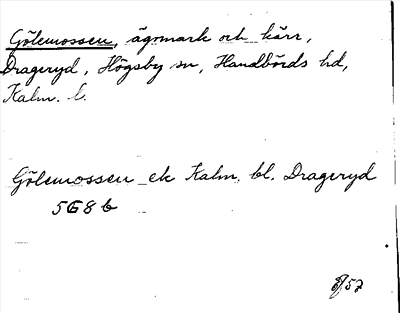 Gölemossen, ägomark och kärr,
Drageryd, Högsby sn, Handbörds hd,
Kalm. l.
Gölemossen ek Kalm. bl. Drageryd
5G8b